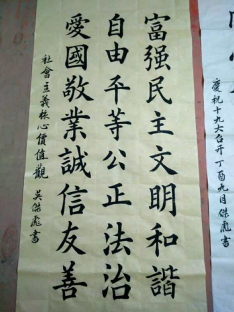 富强民主文明和諧
自由平等公正法治
愛國敬業誠信友善
社會主義核心價值觀
吴傑彪書
慶祝十九大召开丁酉九月傑彪書